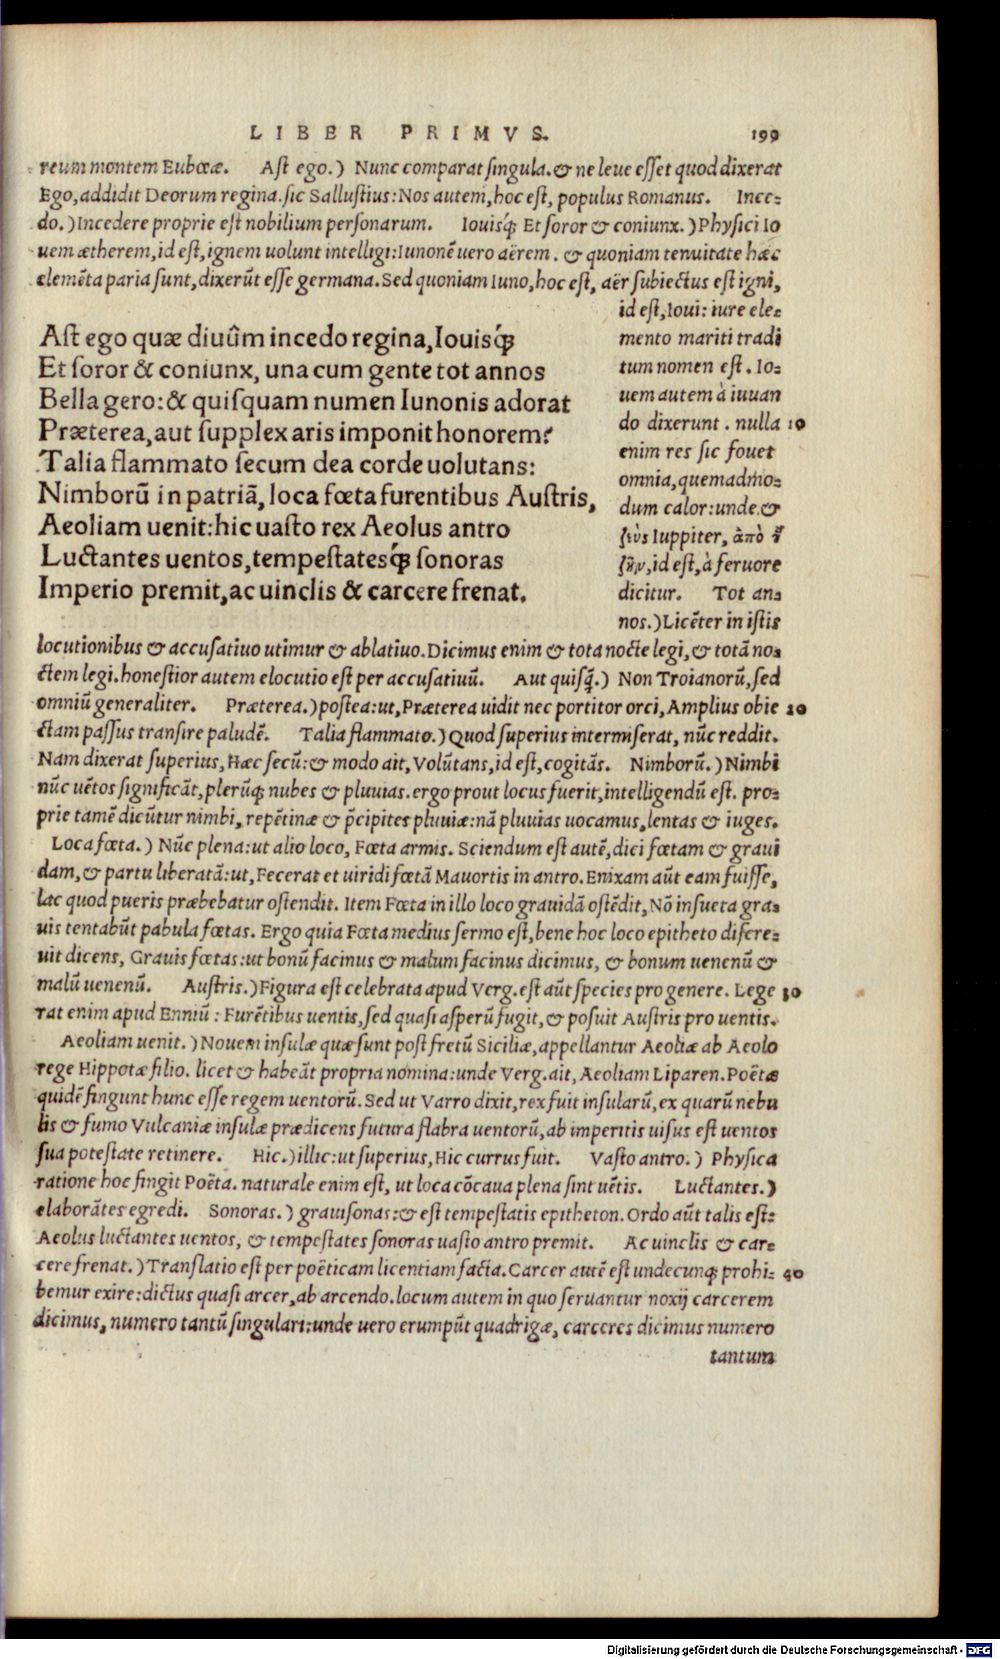 LIBER PRIMVS. 199
reum montem Eubœæ. Ast ego.) Nunc comparat singula. & ne leue esset quod dixerat
Ego, addidit Deorum regina. sic Sallustius: Nos autem, hoc est, populus Romanus. Ince-
do.) Incedere proprie est nobilium personarum. Iouisq́; Et soror & coniunx.) Physici Io
uem ætherem, id est, ignem uolunt intelligi: Iunonē uero aërem. & quoniam tenuitate hæc
elemēta paria sunt, dixerūt esse germana. Sed quoniam Iuno, hoc est, aër subiectus est igni,
id est, Ioui: iure ele-
mento mariti tradi
tum nomen est. Io-
uem autem à iuuan
do dixerunt. nulla 10
enim res sic fouet
omnia, quemadmo-
dum calor: unde &
ζεὺς Iuppiter, ἀπὸ τ͂
ζῆν, id est, à feruore
dicitur. Tot an-
nos.) Licēter in istis
Ast ego quæ diuûm incedo regina, Iouisq́;
Et soror & coniunx, una cum gente tot annos
Bella gero: & quisquam numen Iunonis adorat
Præterea, aut supplex aris imponit honorem?
Talia flammato secum dea corde uolutans:
Nimborū in patriā, loca fœta furentibus Austris,
Aeoliam uenit: hic uasto rex Aeolus antro
Luctantes uentos, tempestatesq́; sonoras
Imperio premit, ac uinclis & carcere frenat.
locutionibus & accusatiuo utimur & ablatiuo. Dicimus enim & tota nocte legi, & totā no-
ctem legi. honestior autem elocutio est per accusatiuū. Aut quisq̄.) Non Troianorū, sed
omniū generaliter. Præterea.) postea: ut, Præterea uidit nec portitor orci, Amplius obie 20
ctam passus transire paludē. Talia flammato.) Quod superius intermiserat, nūc reddit.
Nam dixerat superius, Hæc secū: & modo ait, Volūtans, id est, cogitās. Nimborū.) Nimbi
nūc uētos significāt, plerūq; nubes & pluuias. ergo prout locus fuerit, intelligendū est. pro-
prie tamē dicūtur nimbi, repētinæ & p̄cipites pluuiæ: nā pluuias uocamus, lentas & iuges.
Loca fœta.) Nūc plena: ut alio loco, Fœta armis. Sciendum est autē, dici fœtam & graui
dam, & partu liberatā: ut, Fecerat et uiridi fœtā Mauortis in antro. Enixam aūt eam fuisse,
lac quod pueris præbebatur ostendit. Item Fœta in illo loco grauidā ostēdit, Nō insueta gra-
uis tentabūt pabula fœtas. Ergo quia Fœta medius sermo est, bene hoc loco epitheto discre-
uit dicens, Grauis fœtas: ut bonū facinus & malum facinus dicimus, & bonum uenenū &
malū uenenū. Austris.) Figura est celebrata apud Verg. est aūt species pro genere. Lege 30
rat enim apud Enniū: Furētibus uentis, sed quasi asperū fugit, & posuit Austris pro uentis.
Aeoliam uenit.) Nouem insulæ quæ sunt post fretū Siciliæ, appellantur Aeoliæ ab Aeolo
rege Hippotæ filio. licet & habeāt propria nomina: unde Verg. ait, Aeoliam Liparen. Poëtæ
quidē fingunt hunc esse regem uentorū. Sed ut Varro dixit, rex fuit insularū, ex quarū nebu
lis & fumo Vulcaniæ insulæ prædicens futura flabra uentorū, ab imperitis uisus est uentos
sua potestate retinere. Hic.) illic: ut superius, Hic currus fuit. Vasto antro.) Physica
ratione hoc fingit Poëta. naturale enim est, ut loca cōcaua plena sint uētis. Luctantes.)
elaborātes egredi. Sonoras.) grauisonas: & est tempestatis epitheton. Ordo aūt talis est:
Aeolus luctantes uentos, & tempestates sonoras uasto antro premit. Ac uinclis & car-
cere frenat.) Translatio est per poëticam licentiam facta. Carcer autē est undecunq; prohi- 40
bemur exire: dictus quasi arcer, ab arcendo. locum autem in quo seruantur noxij carcerem
dicimus, numero tantū singulari: unde uero erumpūt quadrigæ, carceres dicimus numero
tantum
Digitalisierung gefördert durch die Deutsche Forschungsgemeinschaft - DFG